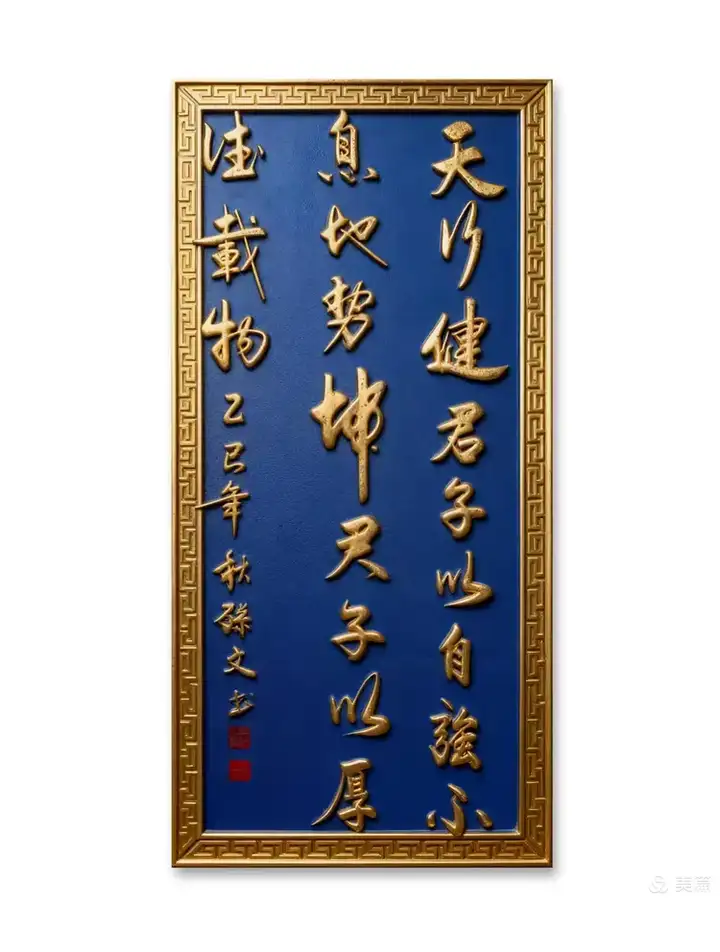 天行健君子以自強不
息地势坤君子以厚
德載物乙巳年秋孫文书
美篇